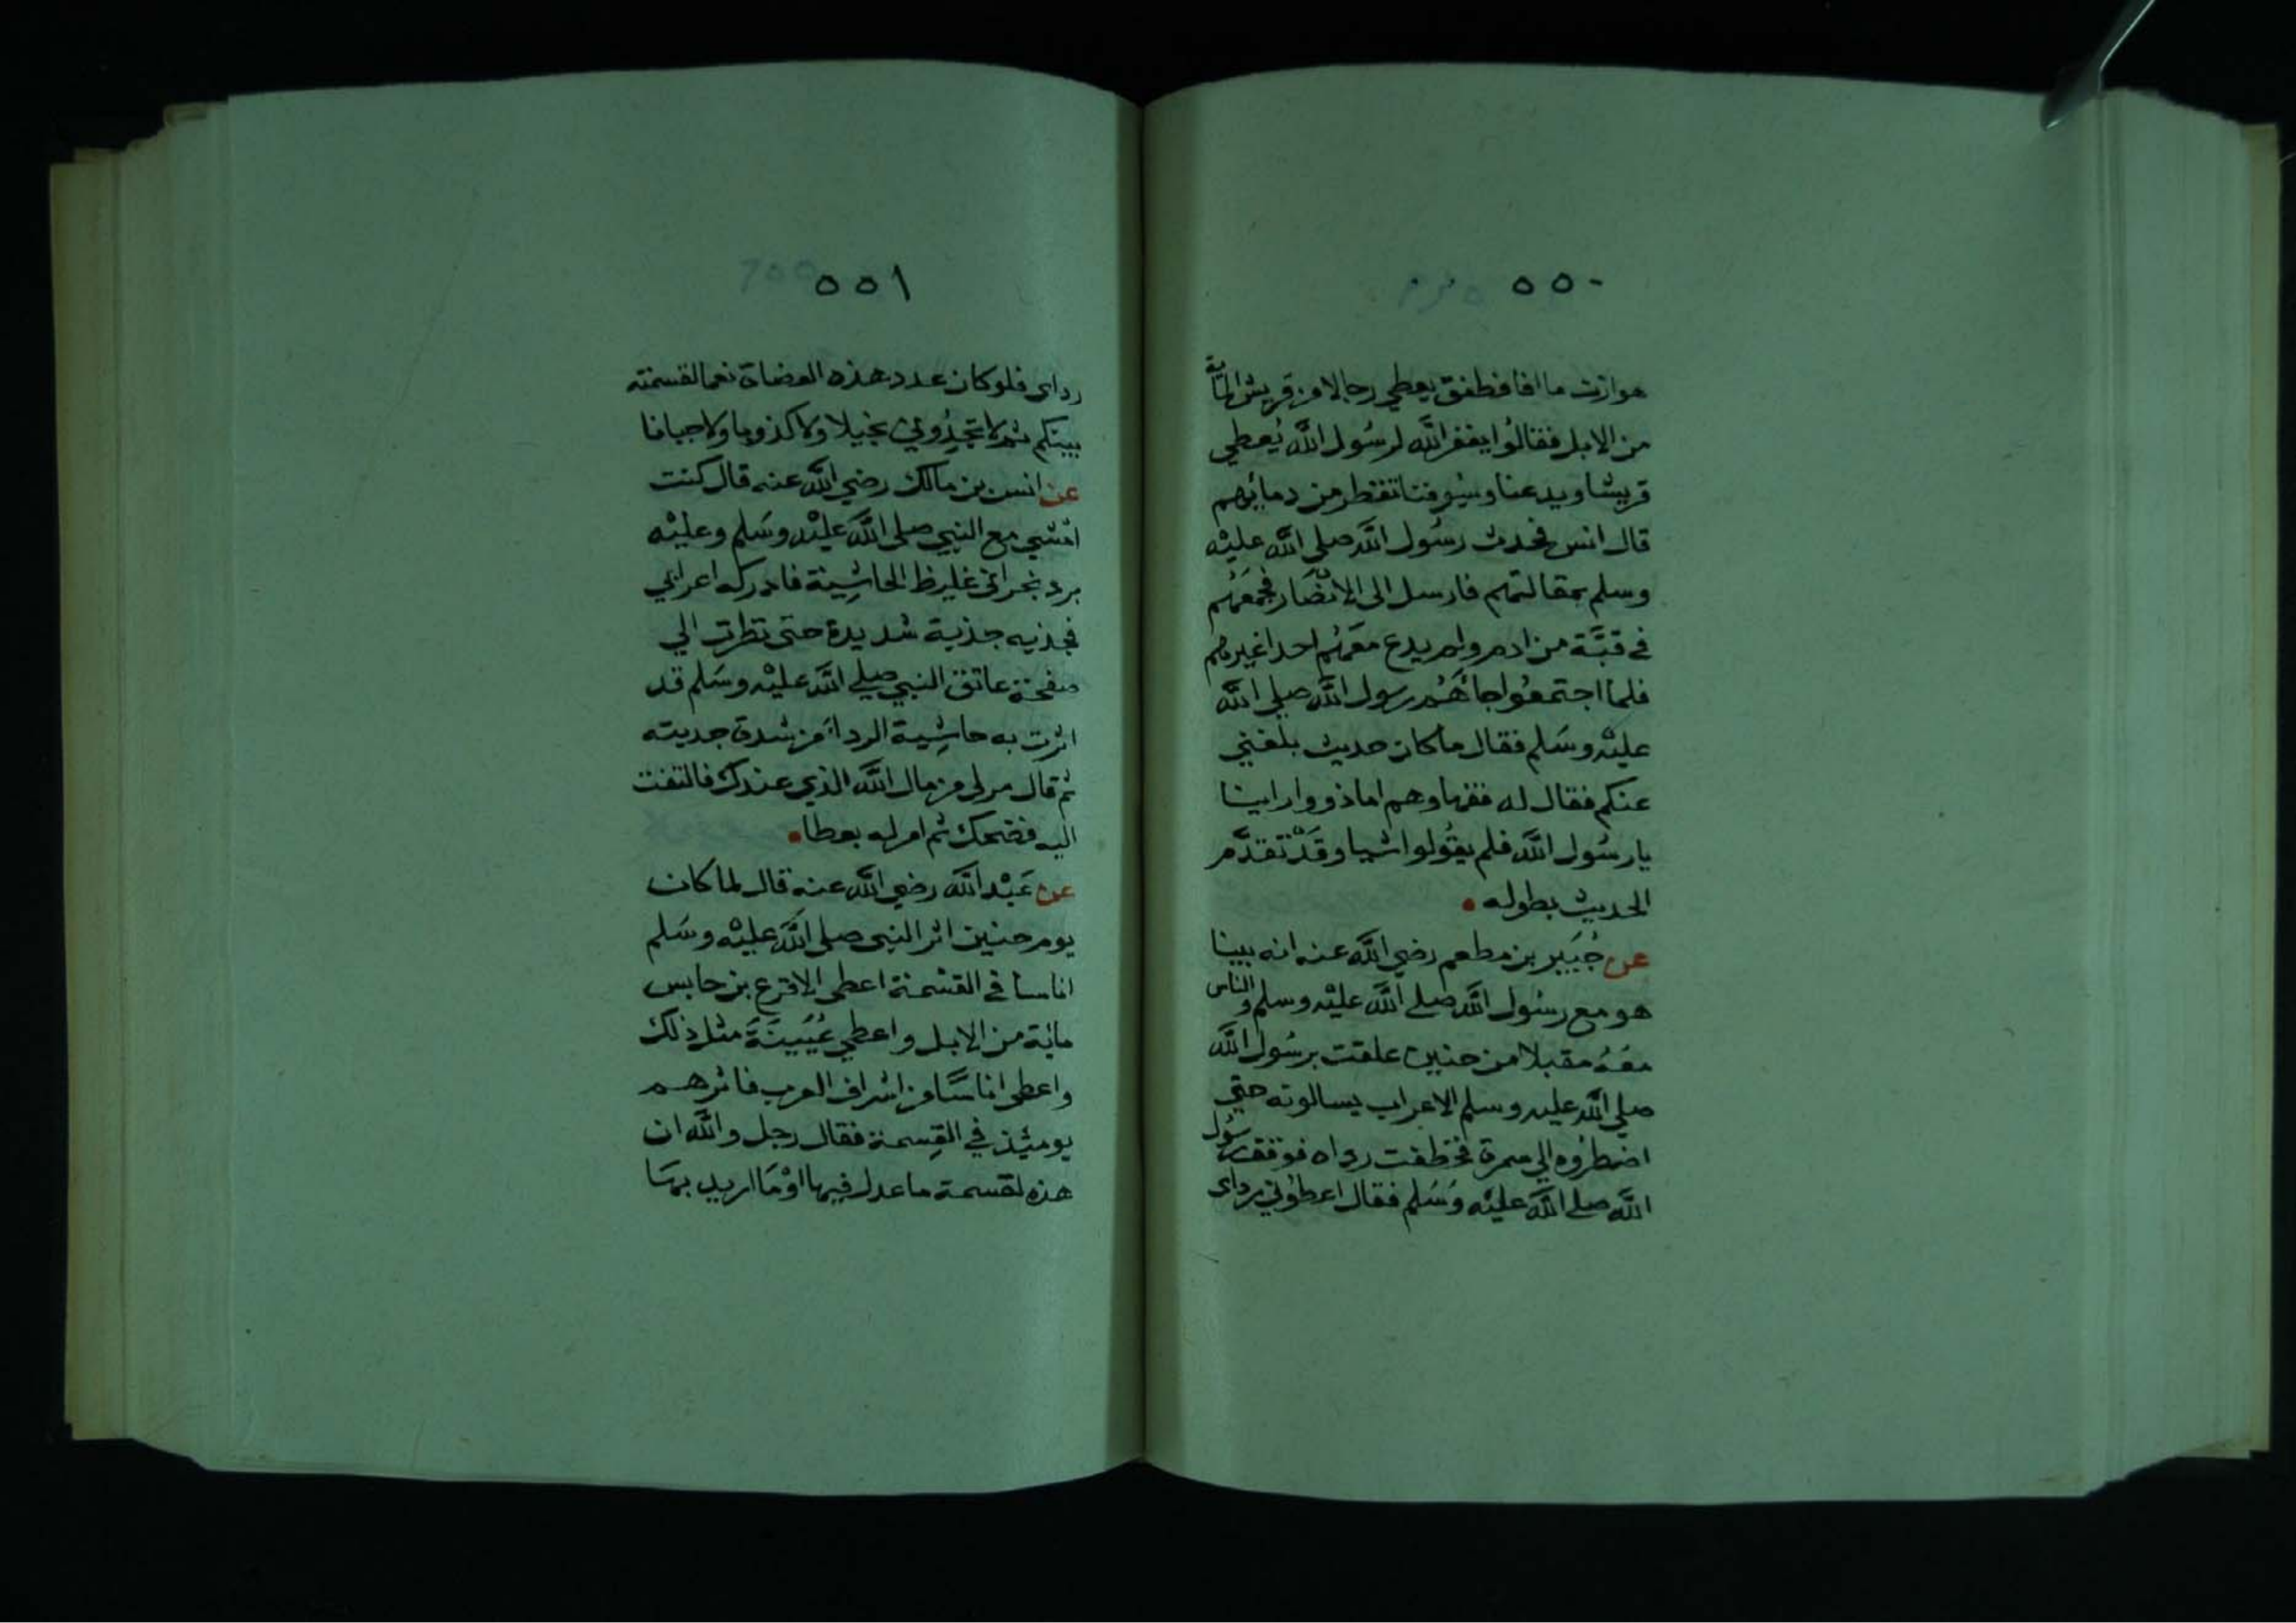 ٥٥٠
هوازن ما افا فطفق يعطي رجالا من قريش الماية
من الابل فقالوا يغفر الله لرسول الله يُعطي
قريشا ويدعنا وسيوفنا تقطر من دمائهم
قال انس فحدث رسُول الله صلي الله عليْه
وسلم بمقالتهم فارسل الى الانصَار فجمعَهُم
في قبَّة من ادم ولم يدع معَهُم احدا غيرهم
فلما اجتمعُوا جاءهُم رسول الله صلي الله
عليْه وسَلم فقال ما كان حديث بلغني
عنكم فقال له فقهاوهم اما ذووا راينا
يا رسُول الله فلم يقُولوا شيا وقَدْ تقدَّم
الحديث بطوله
عن جُبَير بن مطعم رضي الله عنه انه بينا
هو مع رسُول الله صلے الله عليْه وسلم والناس
معَهُ مقبلا من حنين علقت برسُول الله
صلي الله عليه وسلم الاعراب يسالونه حتي
اضطرُوه الي سمرة فخطفت رداه فوقف رسُول
الله صلے الله عليْه وسَلم فقال اعطوْني رداى
٥٥١
رداى فلو كان عدد هذه العضاة نعما لقسمته
بينكم ثم لا تجدُوني بخيلا ولا كذوبا ولا جبانا
عن انس بن مالك رضي الله عنه قال كنت
امْشي مع النبي صلى الله عليْه وسَلم وعليْه
برد نجراني غليظ الحاشِية فادركه اعرابي
فجذبه جذبة شديدة حتى نظرت الي
صفحة عاتق النبي صلي الله عليْه وسَلم قد
اثرت به حاشِية الرداء من شدة جدبته
ثم قال مر لى من مال الله الذي عندك فالتفت
اليه فضحك ثم امر له بعطا
عن عَبْد الله رضي الله عنه قال لما كان
يوم حنين اثر النبي صلى الله عليْه وسَلم
اناسا في القسْمة اعطى الاقرع بن حابس
مائة من الابل واعطي عُيَينَةَ مثل ذلك
واعطى اناسًا من اشراف العرب فاثرهم
يومئذ في القِسمة فقال رجل والله ان
هذه لقسمة ما عدل فيها اوْ مَا اريد بهَا